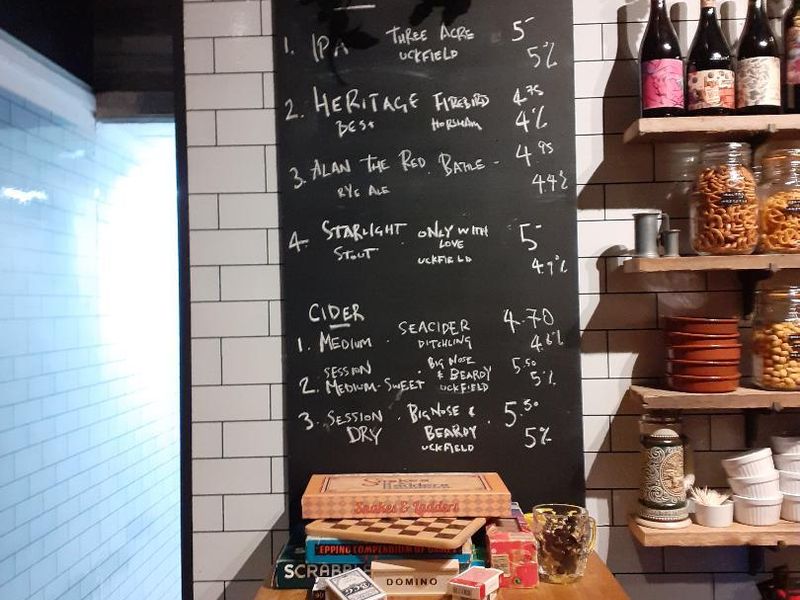 1. IPA THREE ACRE 5-
UCKFIELD 5%
2. HERITAGE FIREBIRD 4.75
BEST HORSHAM 4%
3. ALAN THE RED. BATTLE - 4.95
RYE ALE 4.4%
4. STARLIGHT. ONLY WITH 5-
STOUT LOVE
UCKFIELD 4.9%
CIDER
1. MEDIUM . SEACIDER 4.70
DITCHLING 4.6%
SESSION . BIG NOSE 5.50
2. MEDIUM-SWEET & BEARDY 5%
UCKFIELD
3. SESSION . BIG NOSE & 5.50
DRY BEARDY 5%
UCKFIELD
Snakes & Ladders
Snakes & Ladders
EPPING COMPENDIUM OF GAMES
SCRABB
DOMINO